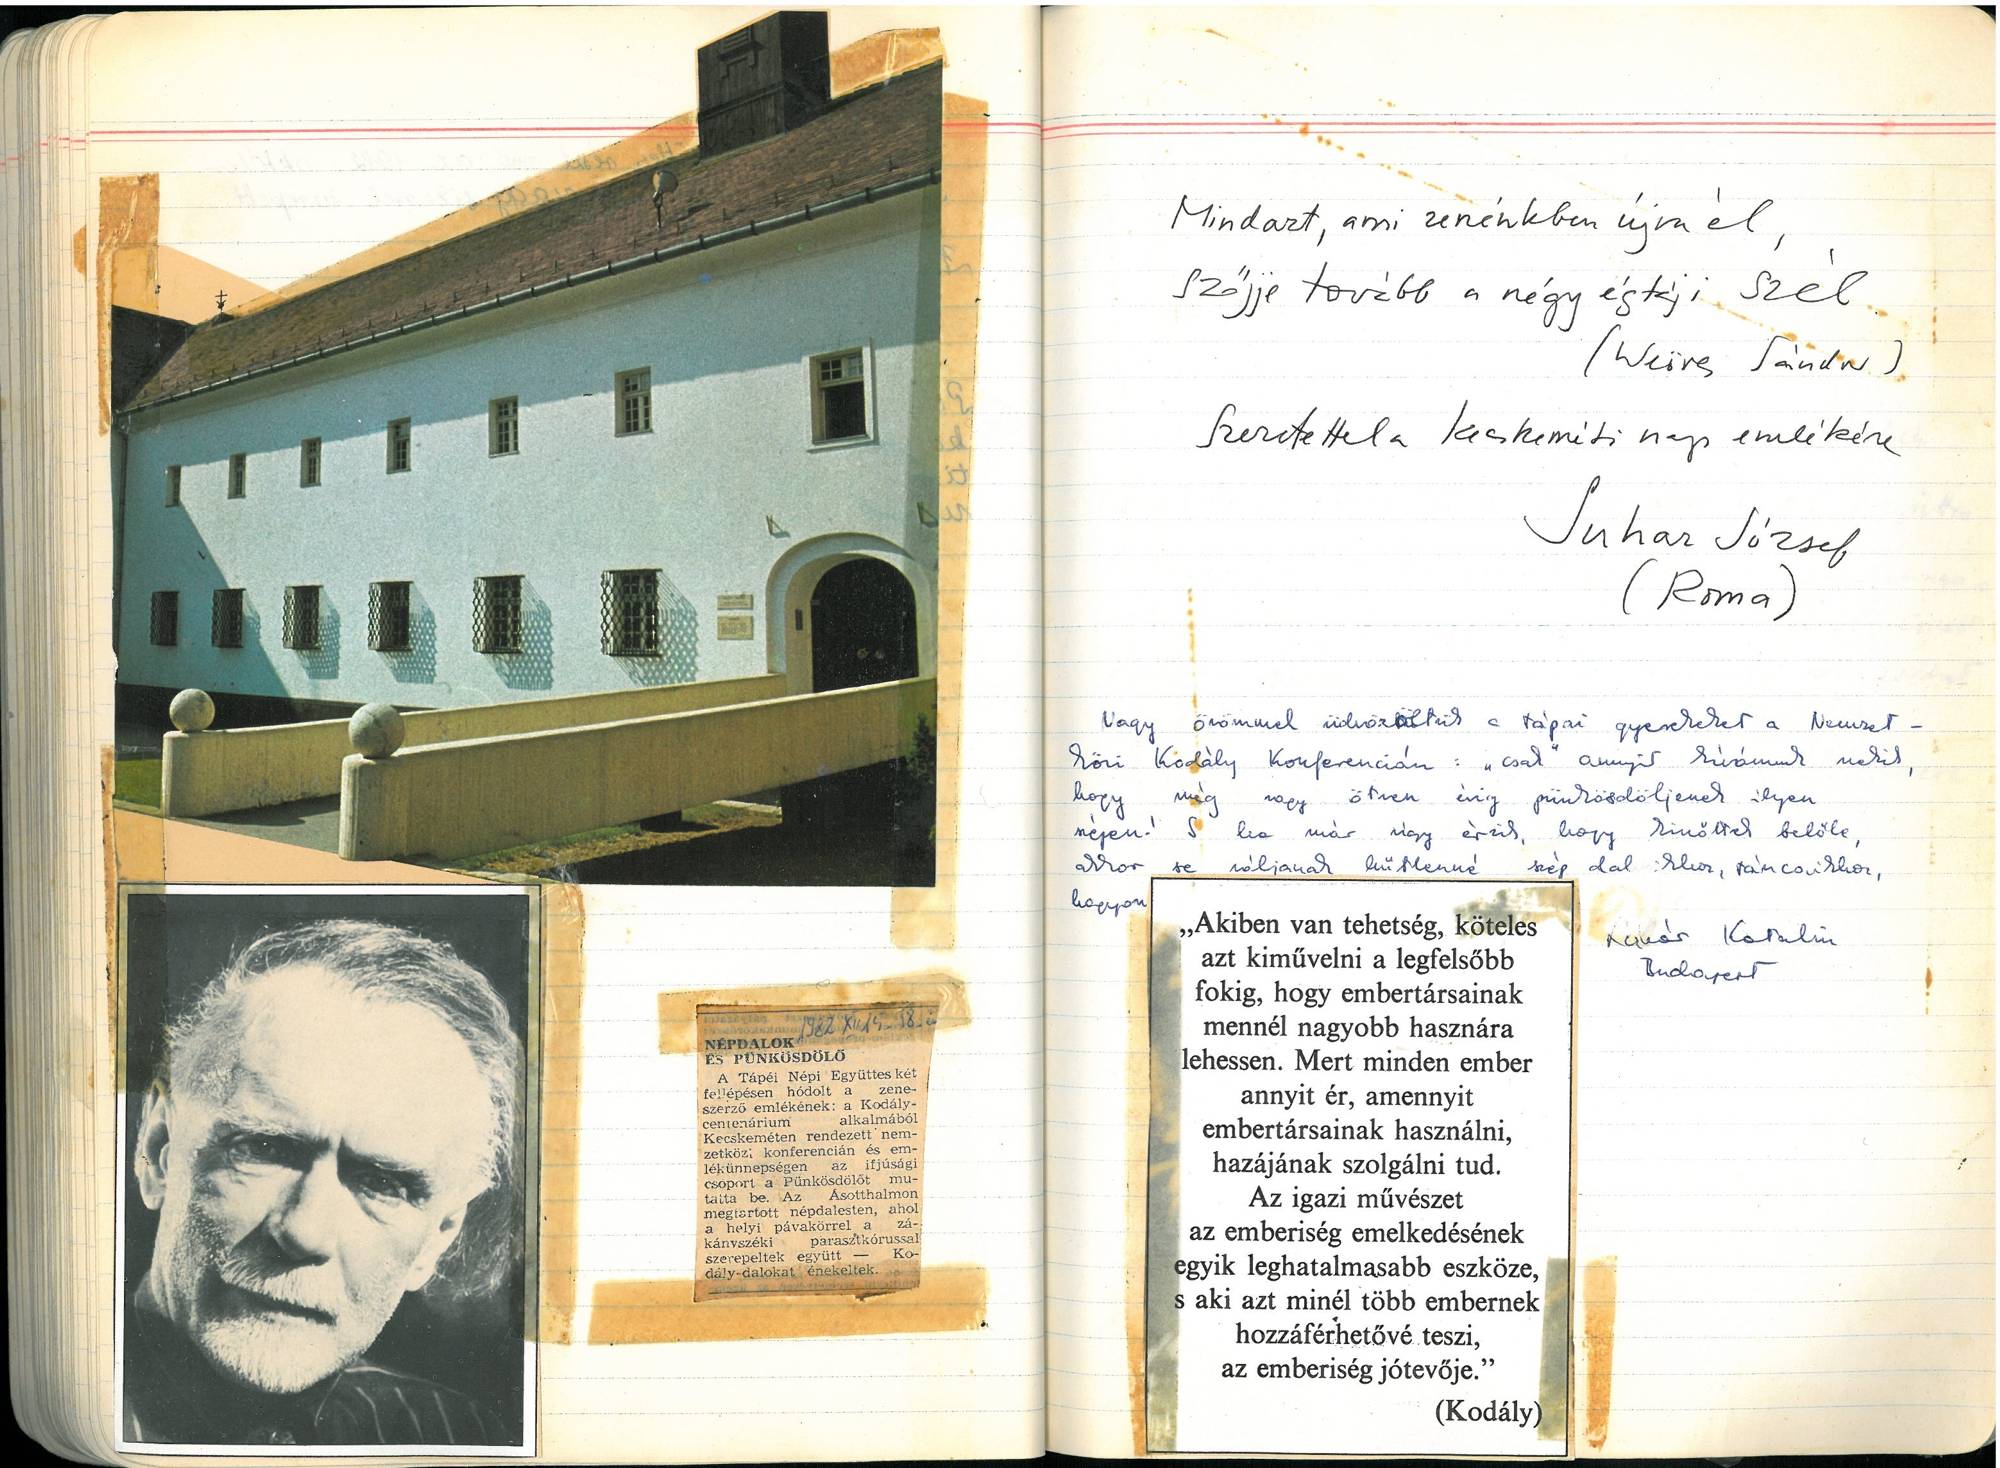 1982 XII. 14-18.
NÉPDALOK
ÉS PÜNKÖSDÖLŐ
A Tápéi Népi Együttes két
fellépésen hódolt a zene-
szerző emlékének: a Kodály-
centenárium alkalmából
Kecskeméten rendezett nem-
zetközi konferencián és em-
lékünnepségen az ifjúsági
csoport a Pünkösdölőt mu-
tatta be. Az Ásotthalmon
megtartott népdalesten, ahol
a helyi pávakörrel a zá-
kányszéki parasztkórussal
szerepeltek együtt — Ko-
dály-dalokat énekeltek.
Mindazt, ami zenénkben újra él,
szőjje tovább a négy égtáji szél.
(Weöres Sándor)
Szeretettel a kecskeméti nap emlékére
Suhar József
(Roma)
Nagy örömmel üdvözöltük a tápai gyerekeket a Nemzet-
közi Kodály Konferencián: „csak" annyit kívánunk nekik,
hogy még vagy ötven évig pünkösdöljenek ilyen
szépen! S ha már úgy érzik, hogy kinőttek belőle,
akkor se váljanak hűtlenné szép dalaikhoz, táncaikhoz,
hagyom
Katalin
Budapest
„Akiben van tehetség, köteles
azt kiművelni a legfelsőbb
fokig, hogy embertársainak
mennél nagyobb hasznára
lehessen. Mert minden ember
annyit ér, amennyit
embertársainak használni,
hazájának szolgálni tud.
Az igazi művészet
az emberiség emelkedésének
egyik leghatalmasabb eszköze,
s aki azt minél több embernek
hozzáférhetővé teszi,
az emberiség jótevője.”
(Kodály)